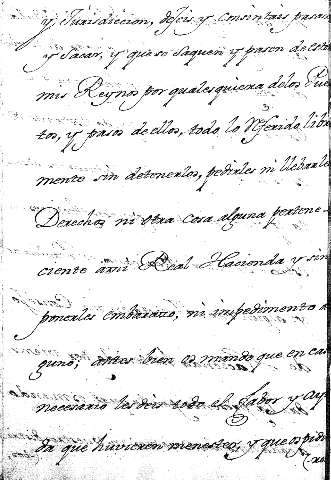 y Jurisdiccion, dejeis y consentais pasar
y Sacar, y que se saquen y pasen de estos
mis Reynos por qualesquiera de los Puer
tos, y pasos de ellos, todo lo referido libre
mente sin detenerlos, pedirles ni llebarles
Derechos ni otra cosa alguna pertene-
ciente ami Real Hacienda y sin
ponerles embarazo, ni impedimento al
guno; antes bien os mando que en caso
necesario les deis todo el fabor y ayu
da que huvieren menester, y que os pidie